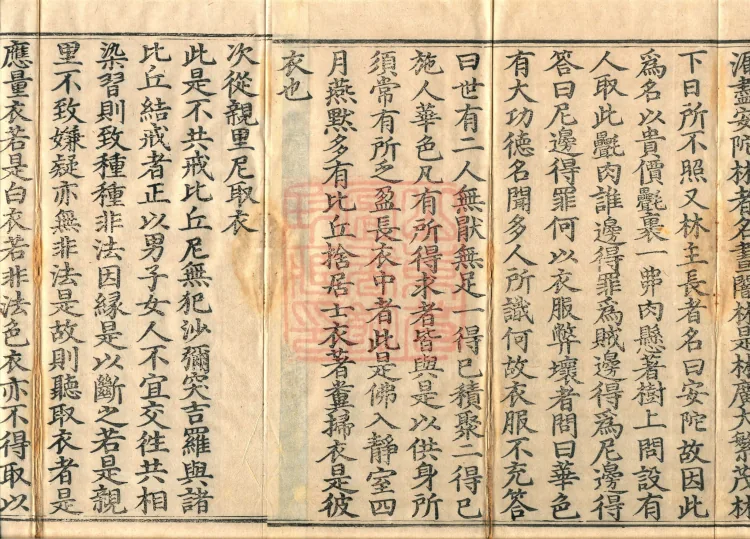 安陀林者名晝闇林是林廣大繁茂林
下日所不照又林主長者名曰安陀故因此
爲名以貴價㲲裹一臠肉懸著樹上問設有
人取此㲲肉誰邊得罪爲賊邊得爲尼邊得
答曰尼邊得罪何以衣服弊壞者問曰華色
有大功德名聞多人所識何故衣服不充答
曰世有二人無猒無足一得已積聚二得已
施人華色凡有所得求者皆與是以供身所
須常有所乏盈長衣中者此是佛入靜室四
月燕默多有比丘捨居士衣著糞掃衣是彼
衣也
次從親里尼取衣
此是不共戒比丘尼無犯沙彌突吉羅與諸
比丘結戒者正以男子女人不宜交往共相
染習則致種種非法因緣是以斷之若是親
里不致嫌疑亦無非法是故則聽取衣者是
應量衣若是白衣若非法色衣亦不得取以